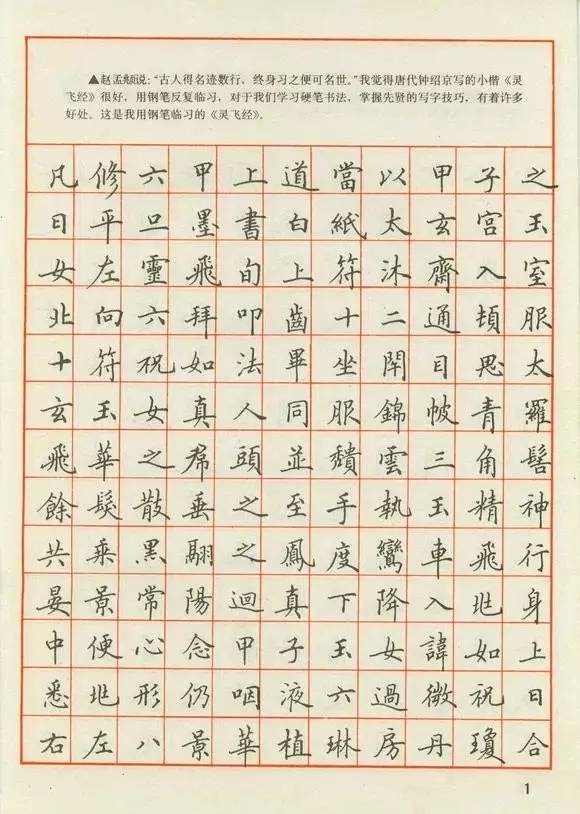 ▲赵孟頫说：“古人得名迹数行，终身习之便可名世。”我觉得唐代钟绍京写的小楷《灵
飞经》很好，用钢笔反复临习，对于我们学习硬笔书法，掌握先贤的写字技巧，有着许多
好处。这是我用钢笔临习的《灵飞经》。
凡修六甲上道當以甲子之
日平旦墨書白紙太玄宮玉
女左靈飛旬上符沐齋入室
北向六拜叩齒十二通頓服
十符祝如法畢坐閇目思太
玄玉女真人同服錦帔青羅
飛華之帬頭並頹雲三角髻
餘髮散垂之至手執玉精神
共乘黑翮之鳳度鸞車飛行
晏景常陽迴真下降入兆身
中便心念甲子玉女諱如上
悉兆形仍咽液六過微祝日
右左八景華植琳房丹瓊合
1